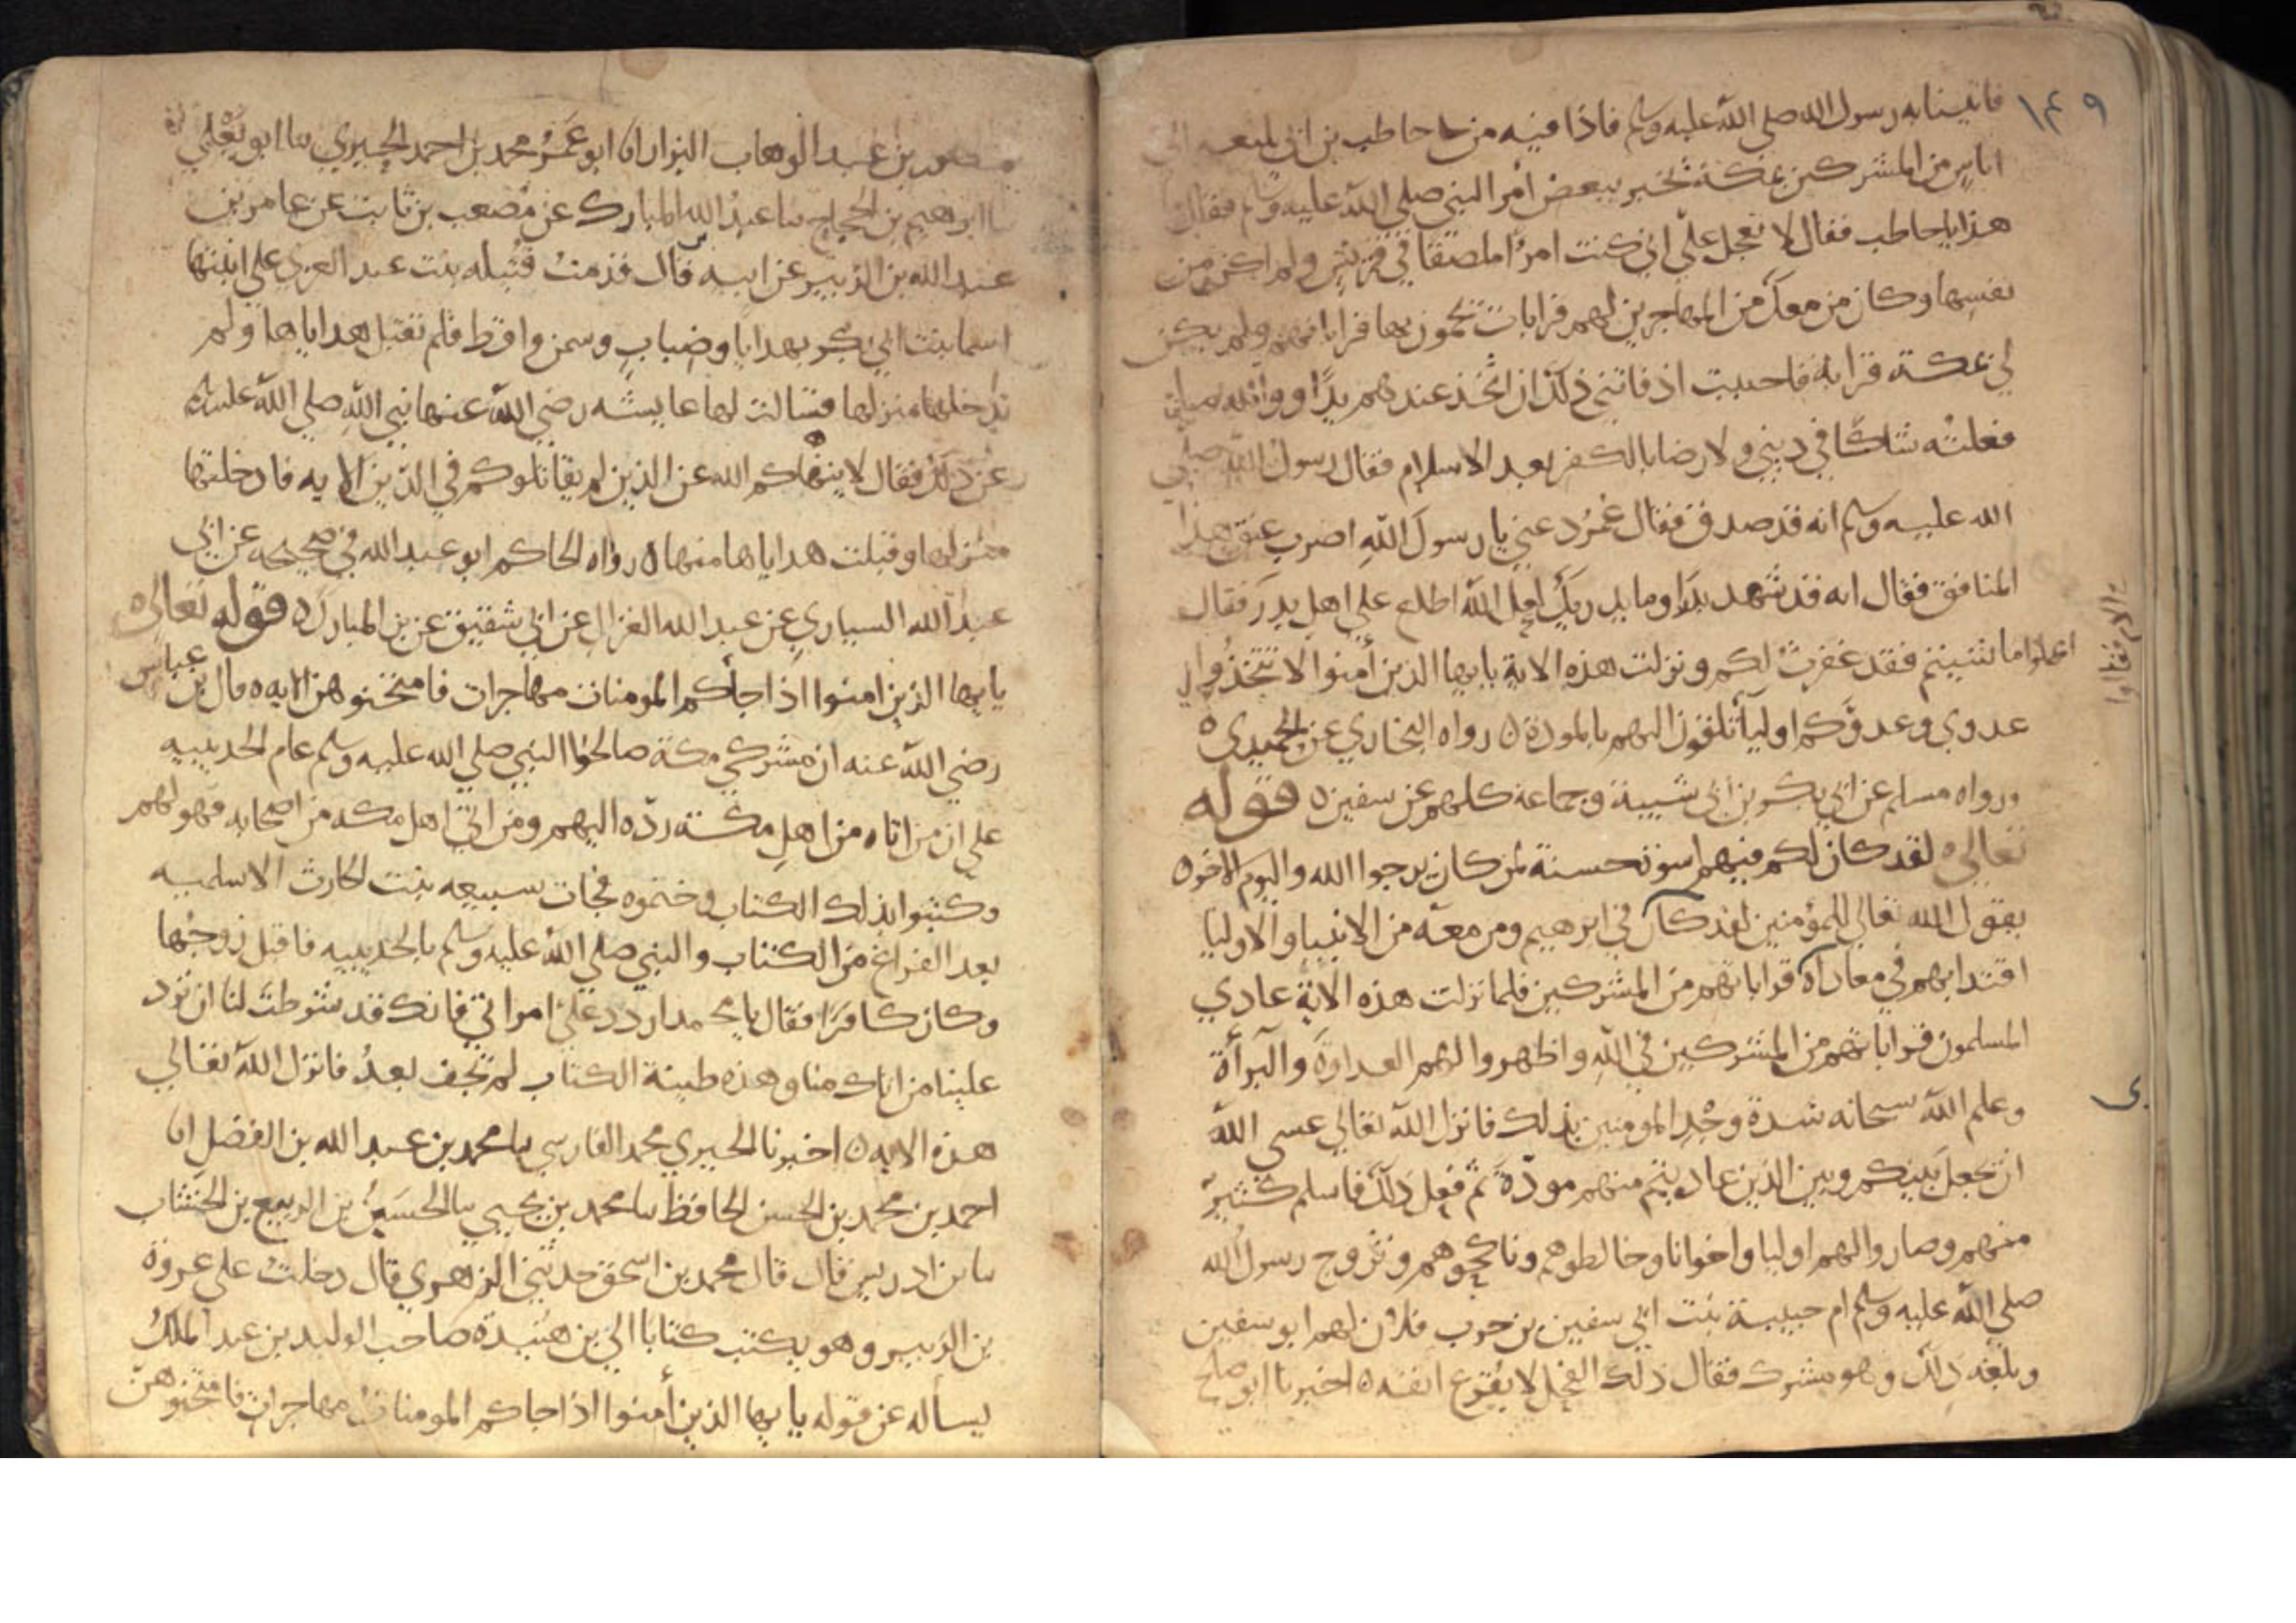 ١٤٩
فاتينا به رسول الله صلي الله عليه وسلم فاذا فيه من حاطب بن ابي بلتعه الي
اناس من المشركين بمكة يخبر ببعض امر النبي صلي الله عليه وسلم فقال ما
هذا يا حاطب فقال لا تعجل عليّ اني كنت امرًا ملصقا في قريش ولم اكن من
نفسها وكان من معك من المهاجرين لهم قرابات يحمون بها قراباتهم ولم يكن
لي بمكة قرابة فاحببت اذ فاتني ذلك ان اتخذ عندهم يدًا ووالله ما
فعلته شكًا في ديني ولا رضا بالكفر بعد الاسلام فقال رسول الله صلي
الله عليه وسلم انه قد صدق فقال عمر دعني يا رسول الله اضرب عنق هذا
المنافق فقال انه قد شهد بدرا وما يدريك لعل الله اطلع علي اهل بدر فقال
اعملوا ما شيتم فقد غفرت لكم ونزلت هذه الاية يايها الذين أمنوا لا تتخذوا
عدوي وعدوكم اوليآ تلقون اليهم بالمودة ٥ رواه البخاري عن الحميدي ٥
ورواه مسلم عن ابي بكر بن ابي شيبة وجماعة كلهم عن سفين ٥ قوله
تعالي ٥ لقد كان لكم فيهم اسوة حسنة لمن كان يرجوا الله واليوم الاخر ٥
يقول الله تعالي للمؤمنين لقد كان في ابرهيم ومن معه من الانبيا والاوليا
اقتدا بهم في معاداة قراباتهم من المشركين فلما نزلت هذه الاية عادي
المسلمون قراباتهم من المشركين في الله واظهروا لهم العداوة والبرأة
وعلم الله سبحانه شدة وجد المومنين بذلك فانزل الله تعالي عسى الله
ان يجعل بينكم وبين الذين عاديتم منهم مودّة ثم فعل ذلك فاسلم كثير
منهم وصاروا لهم اوليا واخوانا وخالطوهم وناكحوهم وتزوج رسول الله
صلي الله عليه وسلم ام حبيبة بنت ابي سفين بن حرب فلان لهم ابو سفين
وبلغه ذلك وهو مشرك فقال ذلك الفحل لا يقرع انفه ٥ اخبرنا ابو صالح
منصور بن عبد الوهاب البزار انا ابو عمرو محمد بن احمد الحيري نا ابو يعلي
نا ابرهيم بن الحجاج نا عبد الله المبارك عن مصعب بن ثابت عن عامر بن
عبد الله بن الزبير عن ابيه قال قدمت قتيله بنت عبد العزي علي ابنتها
اسما بنت ابي بكر بهدايا وضباب وسمن واقط فلم تقبل هداياها ولم
تدخلها منزلها فسالت لها عايشه رضي الله عنها نبي الله صلي الله عليه
عن ذلك فقال لا ينهاكم الله عن الذين لم يقاتلوكم في الدين الايه فادخلتها
منزلها وقبلت هداياها منها ٥ رواه الحاكم ابو عبد الله في صحيحه عن ابي
عبد الله السياري عن عبد الله الغزال عن ابي شقيق عن بن المبارك ٥ قوله تعالي ٥
يايها الذين امنوا اذا جأكم المومنات مهاجرات فامتحنوهن الايه ٥ قال بن عباس
رضي الله عنه ان مشركي مكة صالحوا النبي صلي الله عليه وسلم عام الحديبيه
علي ان من اتاه من اهل مكة ردّه اليهم ومن اتي اهل مكه من اصحابه فهو لهم
وكتبوا بذلك الكتاب وختموه فجات سبيعه بنت الحارث الاسلميه
بعد الفراغ من الكتاب والنبي صلي الله عليه وسلم بالحديبيه فاقبل زوجها
وكان كافرًا فقال يا محمد اردد عليّ امراتي فانك قد شرطت لنا ان ترد
علينا من اتاك منا وهذه طينة الكتاب لم تجف بعدُ فانزل الله تعالي
هذه الايه ٥ اخبرنا الحيري محمد الفارسي نا محمد بن عبد الله بن الفضل انا
احمد بن محمد بن الحسن الحافظ نا محمد بن يحيي نا الحسين بن الربيع بن الخشاب
نا بن ادريس قال قال محمد بن اسحق حدثني الزهري قال دخلت علي عروة
بن الزبير وهو يكتب كتابا الي بن هنيدة صاحب الوليد بن عبد الملك
يسأله عن قوله يايها الذين أمنوا اذا جاكم المومنات مهاجرات فامتحنوهن